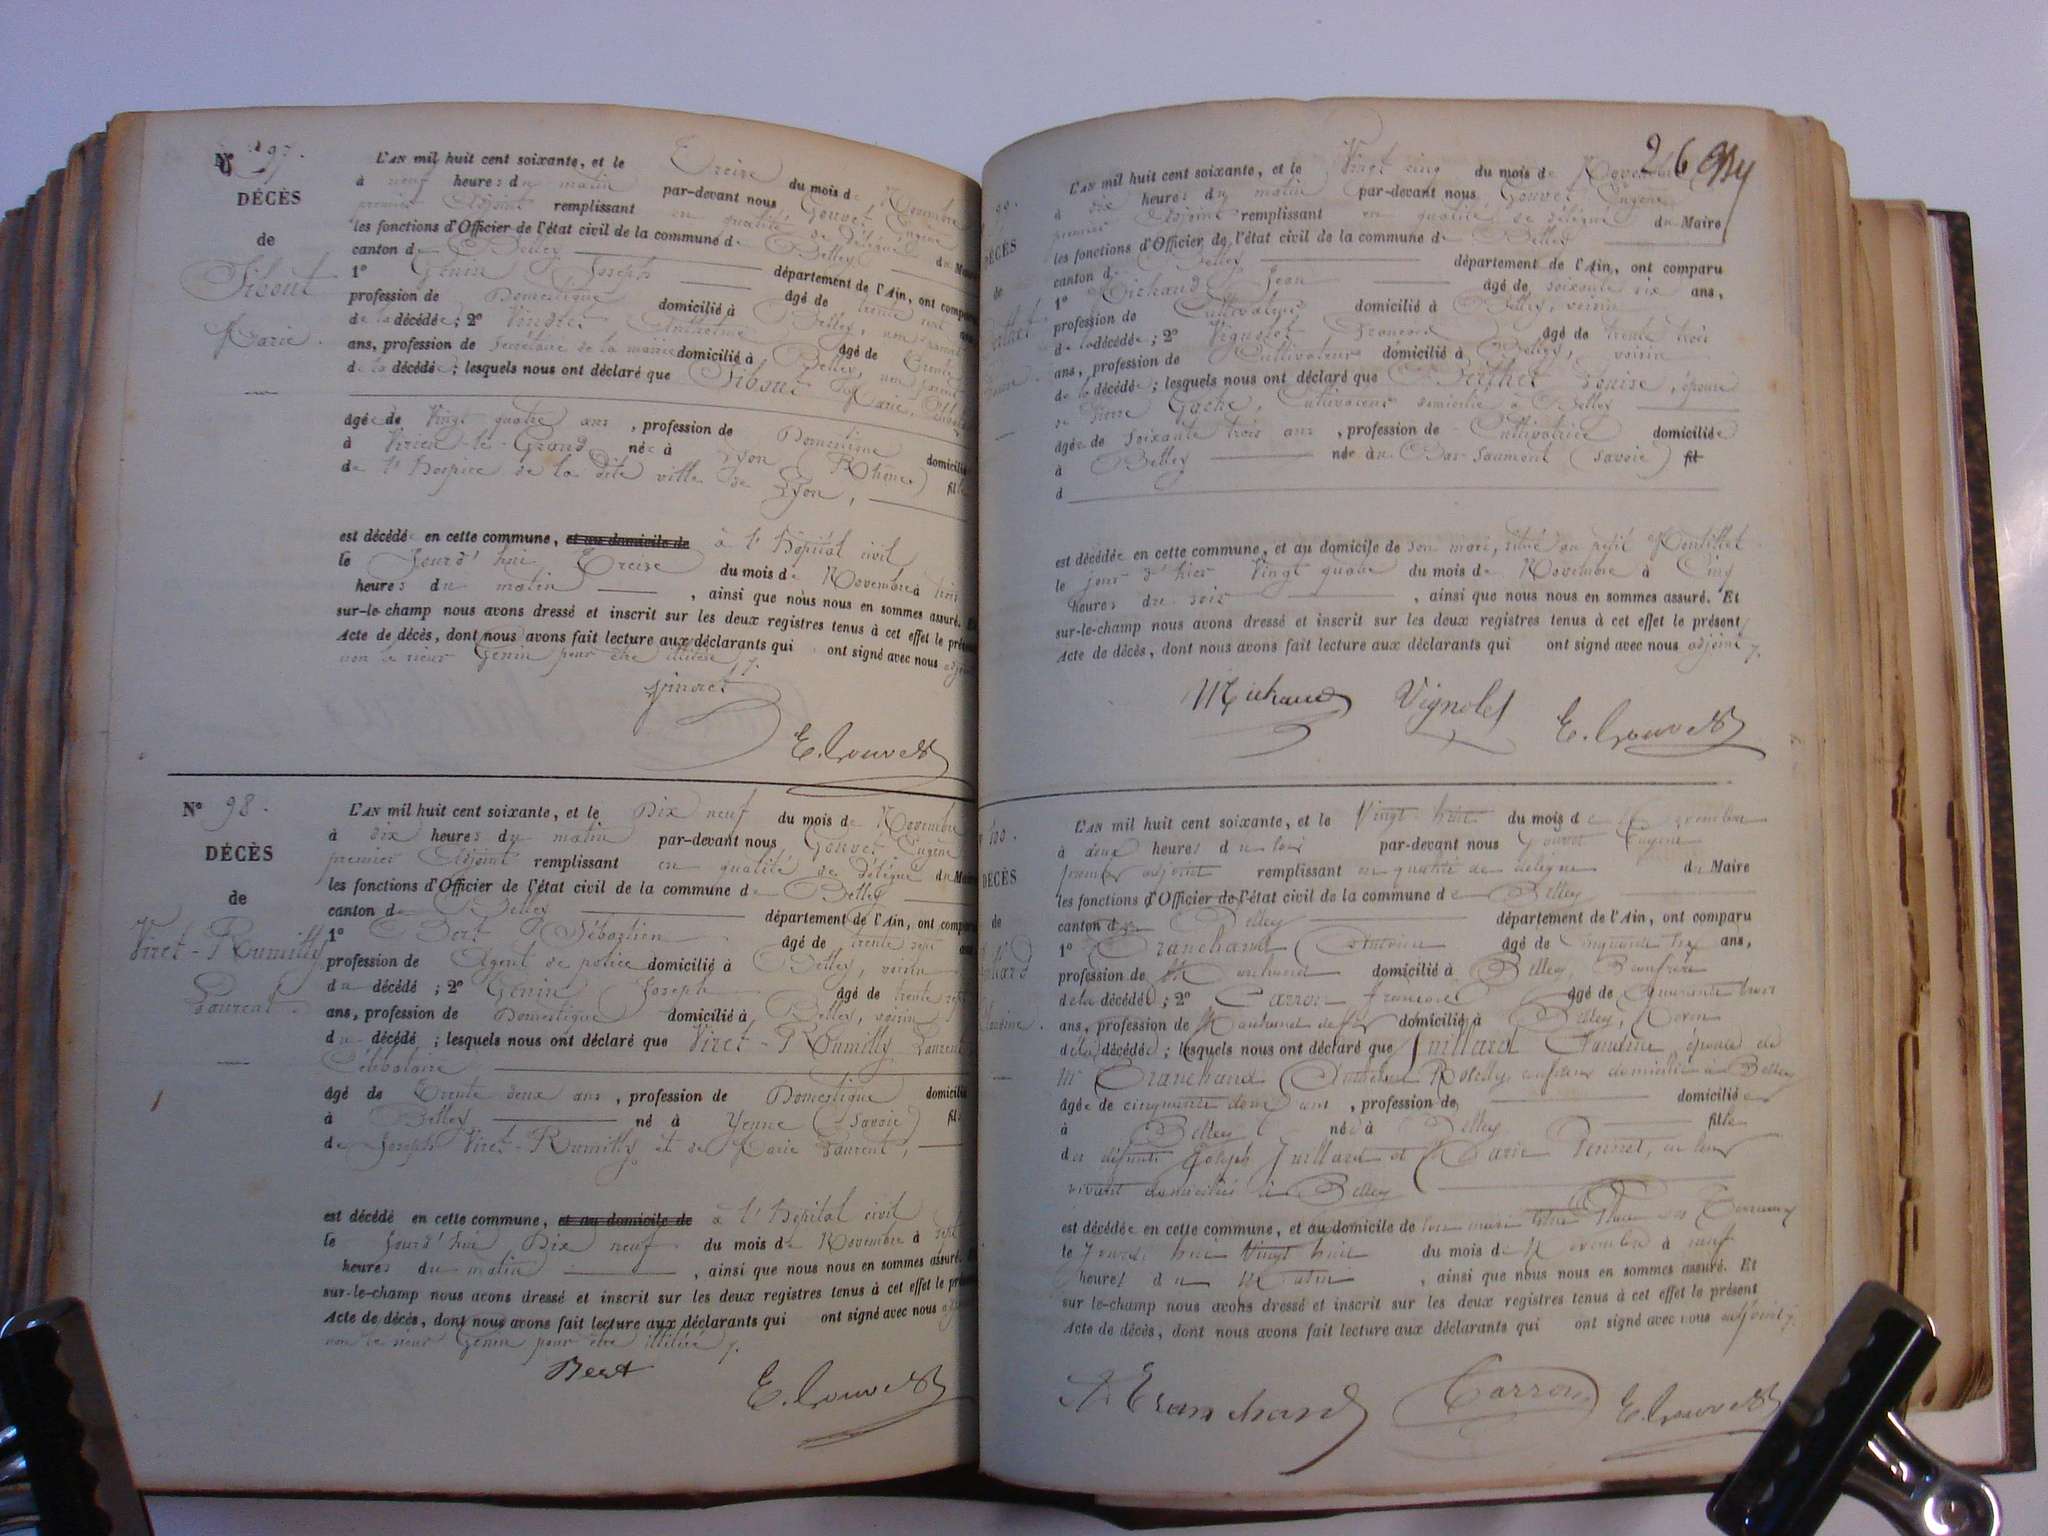 N° 97.
DÉCÈS
de
Sibout
Marie.
L'AN mil huit cent soixante, et le Treize du mois de Novembre
à neuf heures du matin par-devant nous Gouvet Eugène
premier Adjoint remplissant en qualité de délégué du Maire
les fonctions d'Officier de l'état civil de la commune de Belley
canton de Belley département de l'Ain, ont comparu
1° Génin Joseph âgé de trente sept ans
profession de Domestique domicilié à Belley, non parent
de la décédée; 2° Vindret Anthelme âgé de trente
ans, profession de Secrétaire de la mairie domicilié à Belley, non parent
de la décédée; lesquels nous ont déclaré que Sibout Marie,
âgée de Vingt quatre ans, profession de Domestique domiciliée
à Virieu-le-Grand née à Lyon (Rhône) fille
de l'Hospice de la dite ville de Lyon,
est décédée en cette commune, et au domicile de à l'Hôpital civil
le Jourd'hui Treize du mois de Novembre à trois
heures du matin, ainsi que nous nous en sommes assuré. Et
sur-le-champ nous avons dressé et inscrit sur les deux registres tenus à cet effet le présent
Acte de décès, dont nous avons fait lecture aux déclarants qui ont signé avec nous adjoint
non le sieur Génin pour être illitéré
E. Gouvet
N° 98.
DÉCÈS
de
Viret-Rumilly
Laurent.
L'AN mil huit cent soixante, et le Dix neuf du mois de Novembre
à dix heures du matin par-devant nous Gouvet Eugène
premier Adjoint remplissant en qualité de délégué du Maire
les fonctions d'Officier de l'état civil de la commune de Belley
canton de Belley département de l'Ain, ont comparu
1° Bert Sébastien âgé de trente sept ans
profession de Agent de police domicilié à Belley, voisin
du décédé; 2° Génin Joseph âgé de trente sept
ans, profession de Domestique domicilié à Belley, voisin
du décédé; lesquels nous ont déclaré que Viret-Rumilly Laurent
Célibataire
âgé de Trente deux ans, profession de Domestique domicilié
à Belley né à Yenne (Savoie) fils
de Joseph Viret-Rumilly et de Marie Laurent,
est décédé en cette commune, et au domicile de à l'Hôpital civil
le Jourd'hui Dix neuf du mois de Novembre à sept
heures du matin, ainsi que nous nous en sommes assuré. Et
sur-le-champ nous avons dressé et inscrit sur les deux registres tenus à cet effet le présent
Acte de décès, dont nous avons fait lecture aux déclarants qui ont signé avec nous adjoint
non le sieur Génin pour être illitéré
Bert
E. Gouvet
26
99.
DÉCÈS
de
L'AN mil huit cent soixante, et le Vingt cinq du mois de Novembre
à dix heures du matin par-devant nous Gouvet Eugène
premier Adjoint remplissant en qualité de délégué du Maire
les fonctions d'Officier de l'état civil de la commune de Belley
canton de Belley département de l'Ain, ont comparu
1° Michaud Jean âgé de soixante six ans,
profession de Cultivateur domicilié à Belley, voisin
de la décédée; 2° Vignolet François âgé de trente trois
ans, profession de Cultivateur domicilié à Belley, voisin
de la décédée; lesquels nous ont déclaré que Berthet Louise, épouse
de Pierre Gache, Cultivateur domicilié à Belley
âgée de Soixante trois ans, profession de Cultivatrice domiciliée
à Belley née à (Savoie) fil
d
est décédée en cette commune, et au domicile de son mari, situé au petit Montillet
le jour d'hier Vingt quatre du mois de Novembre à Cinq
heures du soir, ainsi que nous nous en sommes assuré. Et
sur-le-champ nous avons dressé et inscrit sur les deux registres tenus à cet effet le présent
Acte de décès, dont nous avons fait lecture aux déclarants qui ont signé avec nous adjoint
Michaud Vignolet E. Gouvet
100.
DÉCÈS
de
L'AN mil huit cent soixante, et le Vingt huit du mois de Novembre
à deux heures du soir par-devant nous Gouvet Eugène
premier adjoint remplissant en qualité de délégué du Maire
les fonctions d'Officier de l'état civil de la commune de Belley
canton de Belley département de l'Ain, ont comparu
1° Tranchand Antoine âgé de cinquante six ans,
profession de Marchand domicilié à Belley, Beaufrère
de la décédée; 2° Carron françois âgé de quarante trois
ans, profession de Marchand de fer domicilié à Belley, Neveu
de la décédée; lesquels nous ont déclaré que Juillard Claudine épouse de
Mr Tranchand domicilié à Belley
âgée de cinquante deux ans, profession de domiciliée
à Belley née à Belley fille
des défunts Joseph Juillard et Marie Pennet, en leur
vivant domiciliés à Belley
est décédée en cette commune, et au domicile de son mari Place des Terreaux
le Jourd'hui Vingt huit du mois de Novembre à neuf
heures du Matin, ainsi que nous nous en sommes assuré. Et
sur-le-champ nous avons dressé et inscrit sur les deux registres tenus à cet effet le présent
Acte de décès, dont nous avons fait lecture aux déclarants qui ont signé avec nous adjoint
A. Tranchand Carron E. Gouvet